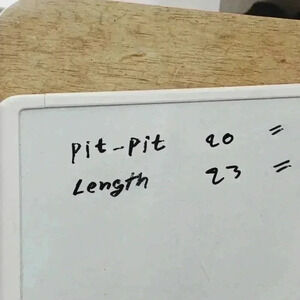 Pit-Pit 20 =
Length 23 =